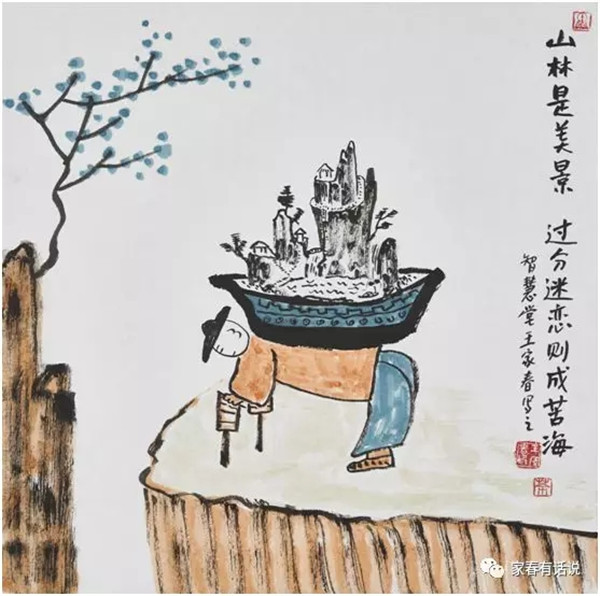 山林是美景 过分迷恋则成苦海
智慧堂王家春写之
家春有话说